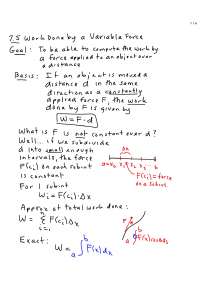 7.5 Work Done by a Variable Force
Goal: To be able to compute the work by
a force applied to an object over
a distance
Basis: If an object is moved a
distance d in the same
direction as a constantly
applied force F, the work
done by F is given by
W = F·d
What is F is not constant over d?
Well... if we subdivide
d into small enough
intervals, the force
F(cᵢ) on each subint
is constant
Δx
F(cᵢ) = force
on a subint.
For 1 subint
Wᵢ = F(cᵢ)·Δx
Approx of total work done:
W = Σ F(cᵢ)Δx
Exact:
W = ₐ∫ᵇ F(x)dx